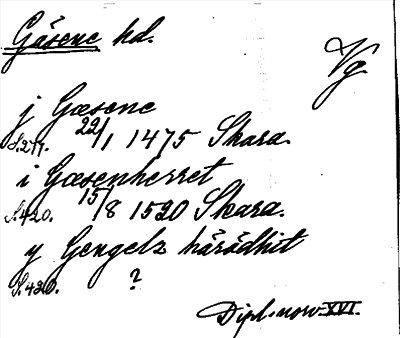 Gäsene hd.
Vg
j Gæsene
S.277. 22/1 1475 Skara.
i Gæsenherret
S.420. 15/8 1520 Skara.
y Gengelz häradhit
S.420. ?
Dipl. norv. XVI.